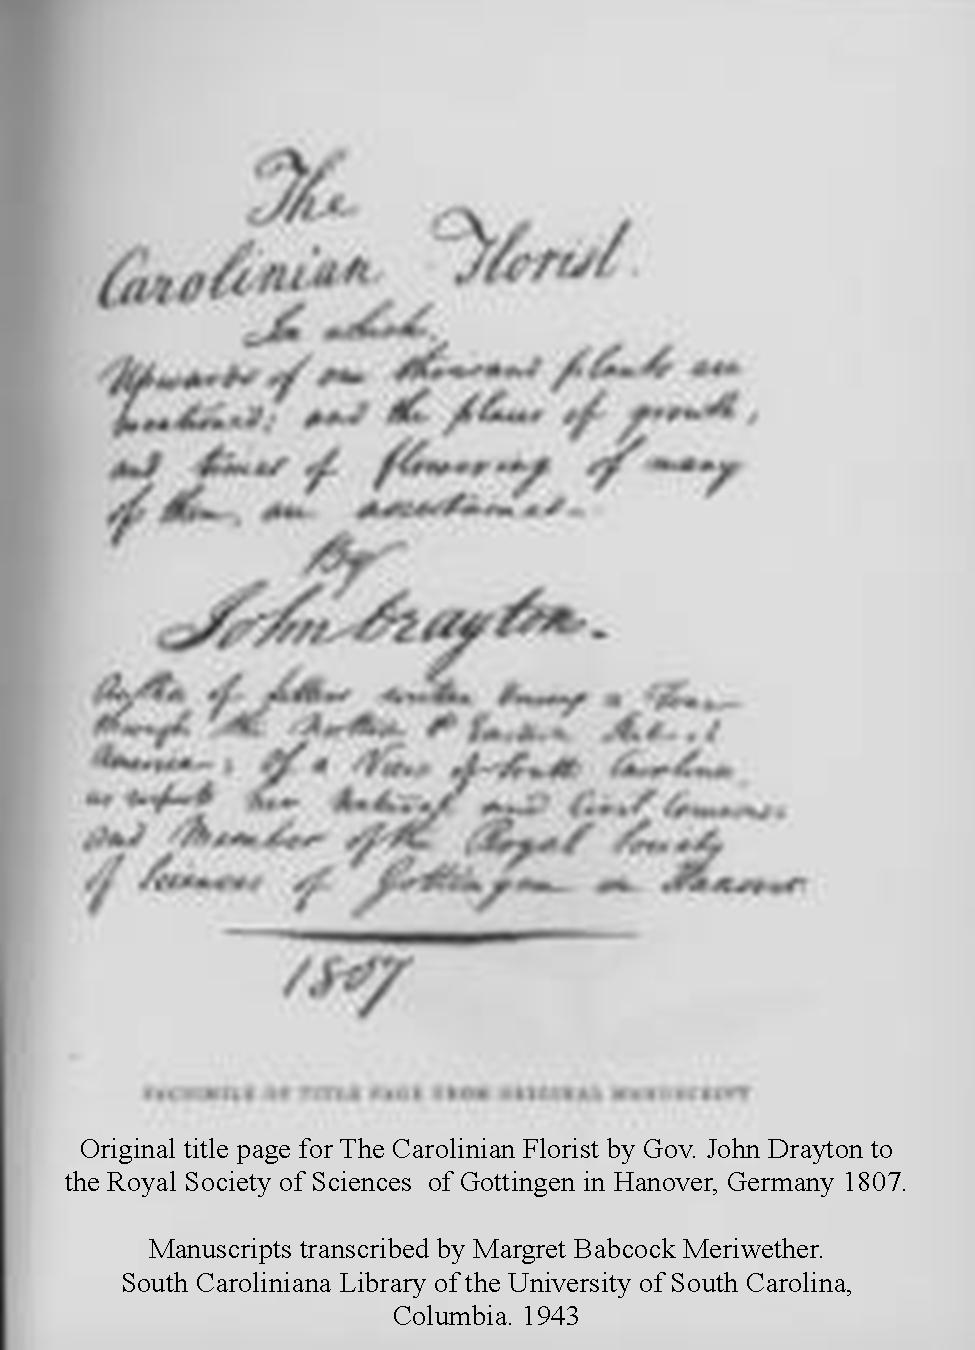 The
Carolinian Florist.
In which,
Upwards of one thousand plants are
mentioned; and the places of growth,
and times of flowering of many
of them, are ascertained.
By
John Drayton.
Author of letters written during a Tour
through the Northern & Eastern States of
America; Of a View of South Carolina,
as respects her Natural and Civil Concerns;
and Member of the Royal Society
of Sciences of Gottingen in Hanover.
1807
FACSIMILE OF TITLE PAGE FROM ORIGINAL MANUSCRIPT
Original title page for The Carolinian Florist by Gov. John Drayton to
the Royal Society of Sciences of Gottingen in Hanover, Germany 1807.
Manuscripts transcribed by Margret Babcock Meriwether.
South Caroliniana Library of the University of South Carolina,
Columbia. 1943